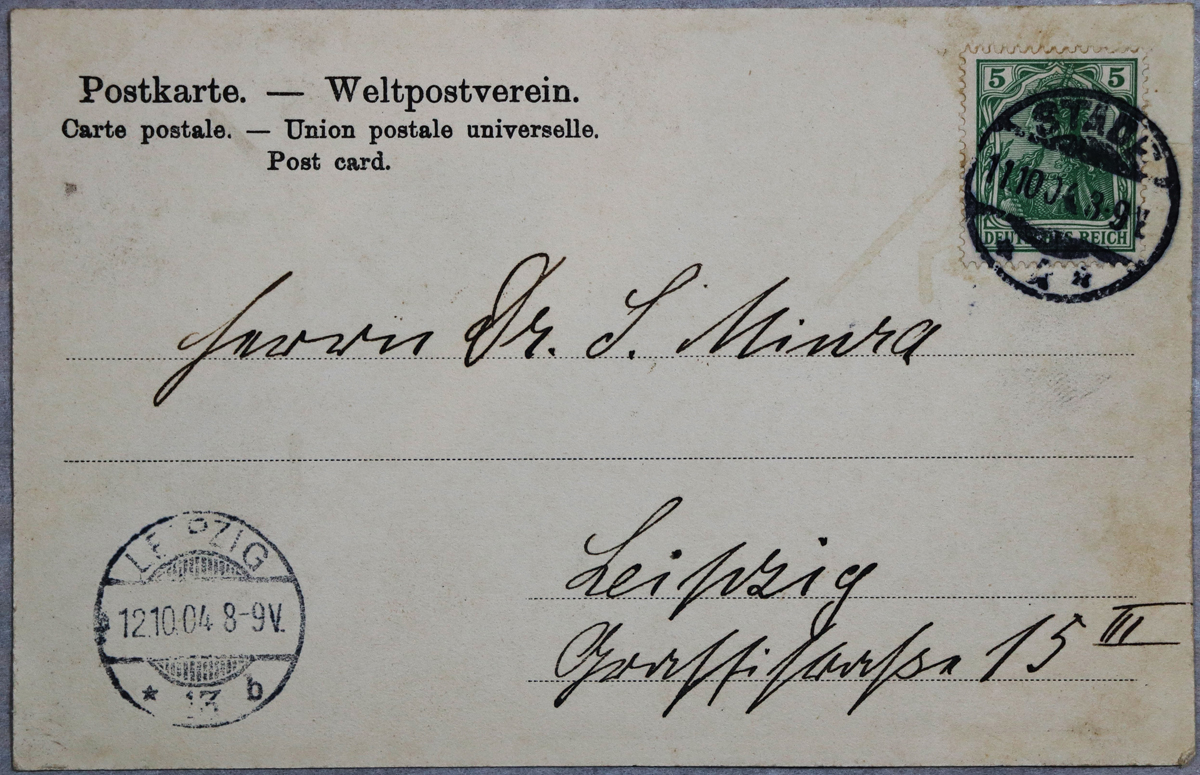 Postkarte. — Weltpostverein.
Carte postale. — Union postale universelle.
Post card.
5 5
DEUTSCHES REICH
STADE
11.10.04 8-9V.
Herrn Dr. S. Miura
Leipzig
Grassistraße 15 III
LEIPZIG
12.10.04 8-9V.
* 13 b